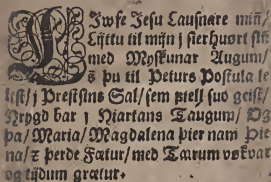 JEwse Jesu Lausnare miñ/
Lijttu til mijn j sierhuort siñ
med Myskunar Augum/
ꝫ þu til Peturs Postula le
leist/ j Prestsins Sal/ sem stell suo geist/
Hrygd bar j Hiartans Taugum/ Og
þa/ Maria/ Magdalena þier nam Pie
na/ ꝫ þerde Fætur/ med Tærum vøkvar
og tijdum grætur.